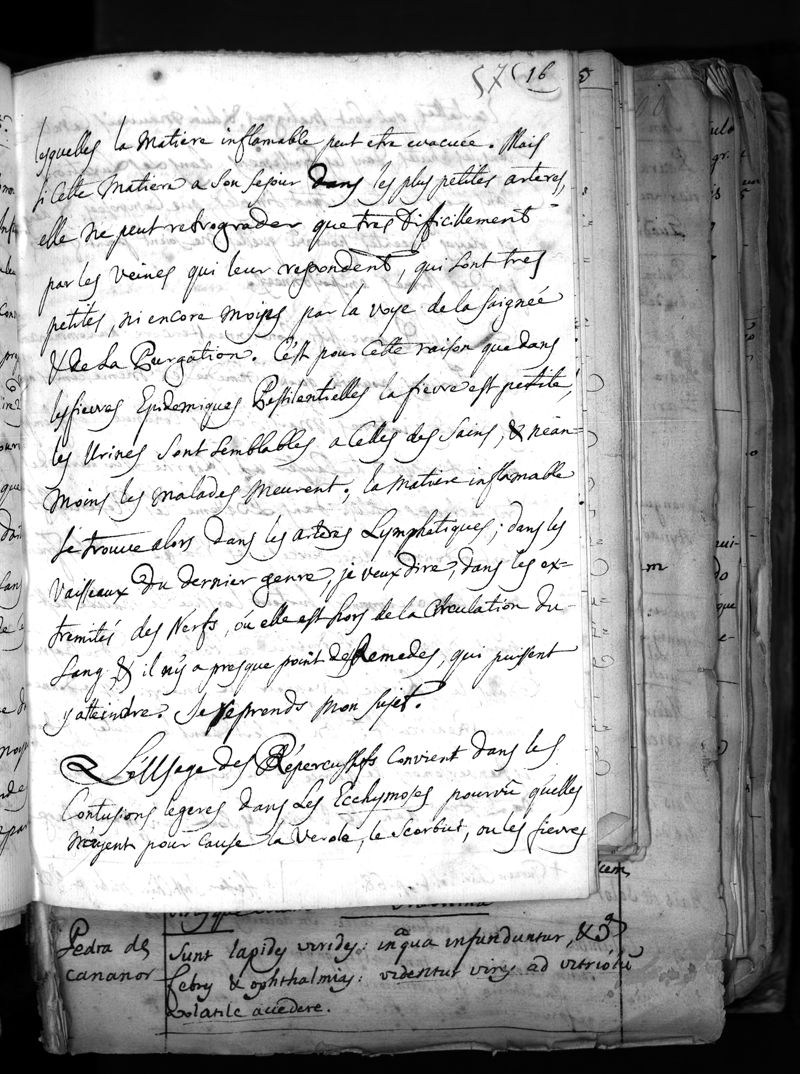 57( 16
lesquelles la Matiere inflamable peut etre evacuée. Mais
si Cette Matiere a Son Sejour dans les plus petites arteres,
elle ne peut retrograder que tres difficillement
par les veines qui leur repondent, qui sont tres
petites, ni encore moins par la voye de la saignée
& de La Purgation. C'est pour Cette raison que dans
les fievres Epidemiques Pestilentielles la fievre est petite,
les Urines Sont Semblables a Celles des Sains, & nean=
moins les malades meurent; la Matiere inflamable
se trouve alors dans les arteres Lymphatiques; dans les
vaisseaux du dernier genre, je veux dire, dans les ex=
tremités des Nerfs, ou elle est hors de la Circulation du
Sang, & il n'y a presque point de Remedes, qui puissent
y atteindre. Je reprends mon Sujet.
L'Usage des Répercussifs Convient dans les
Contusions legeres dans Les Ecchymoses pourvû qu'elles
n'ayent pour Cause la verole, le Scorbut, ou les fievres
Pedra de
Cananor
Sunt lapides virides: in aqua infunduntur, &
febres & ophthalmias: videntur vires ad vitriolū
Volatile accedere.